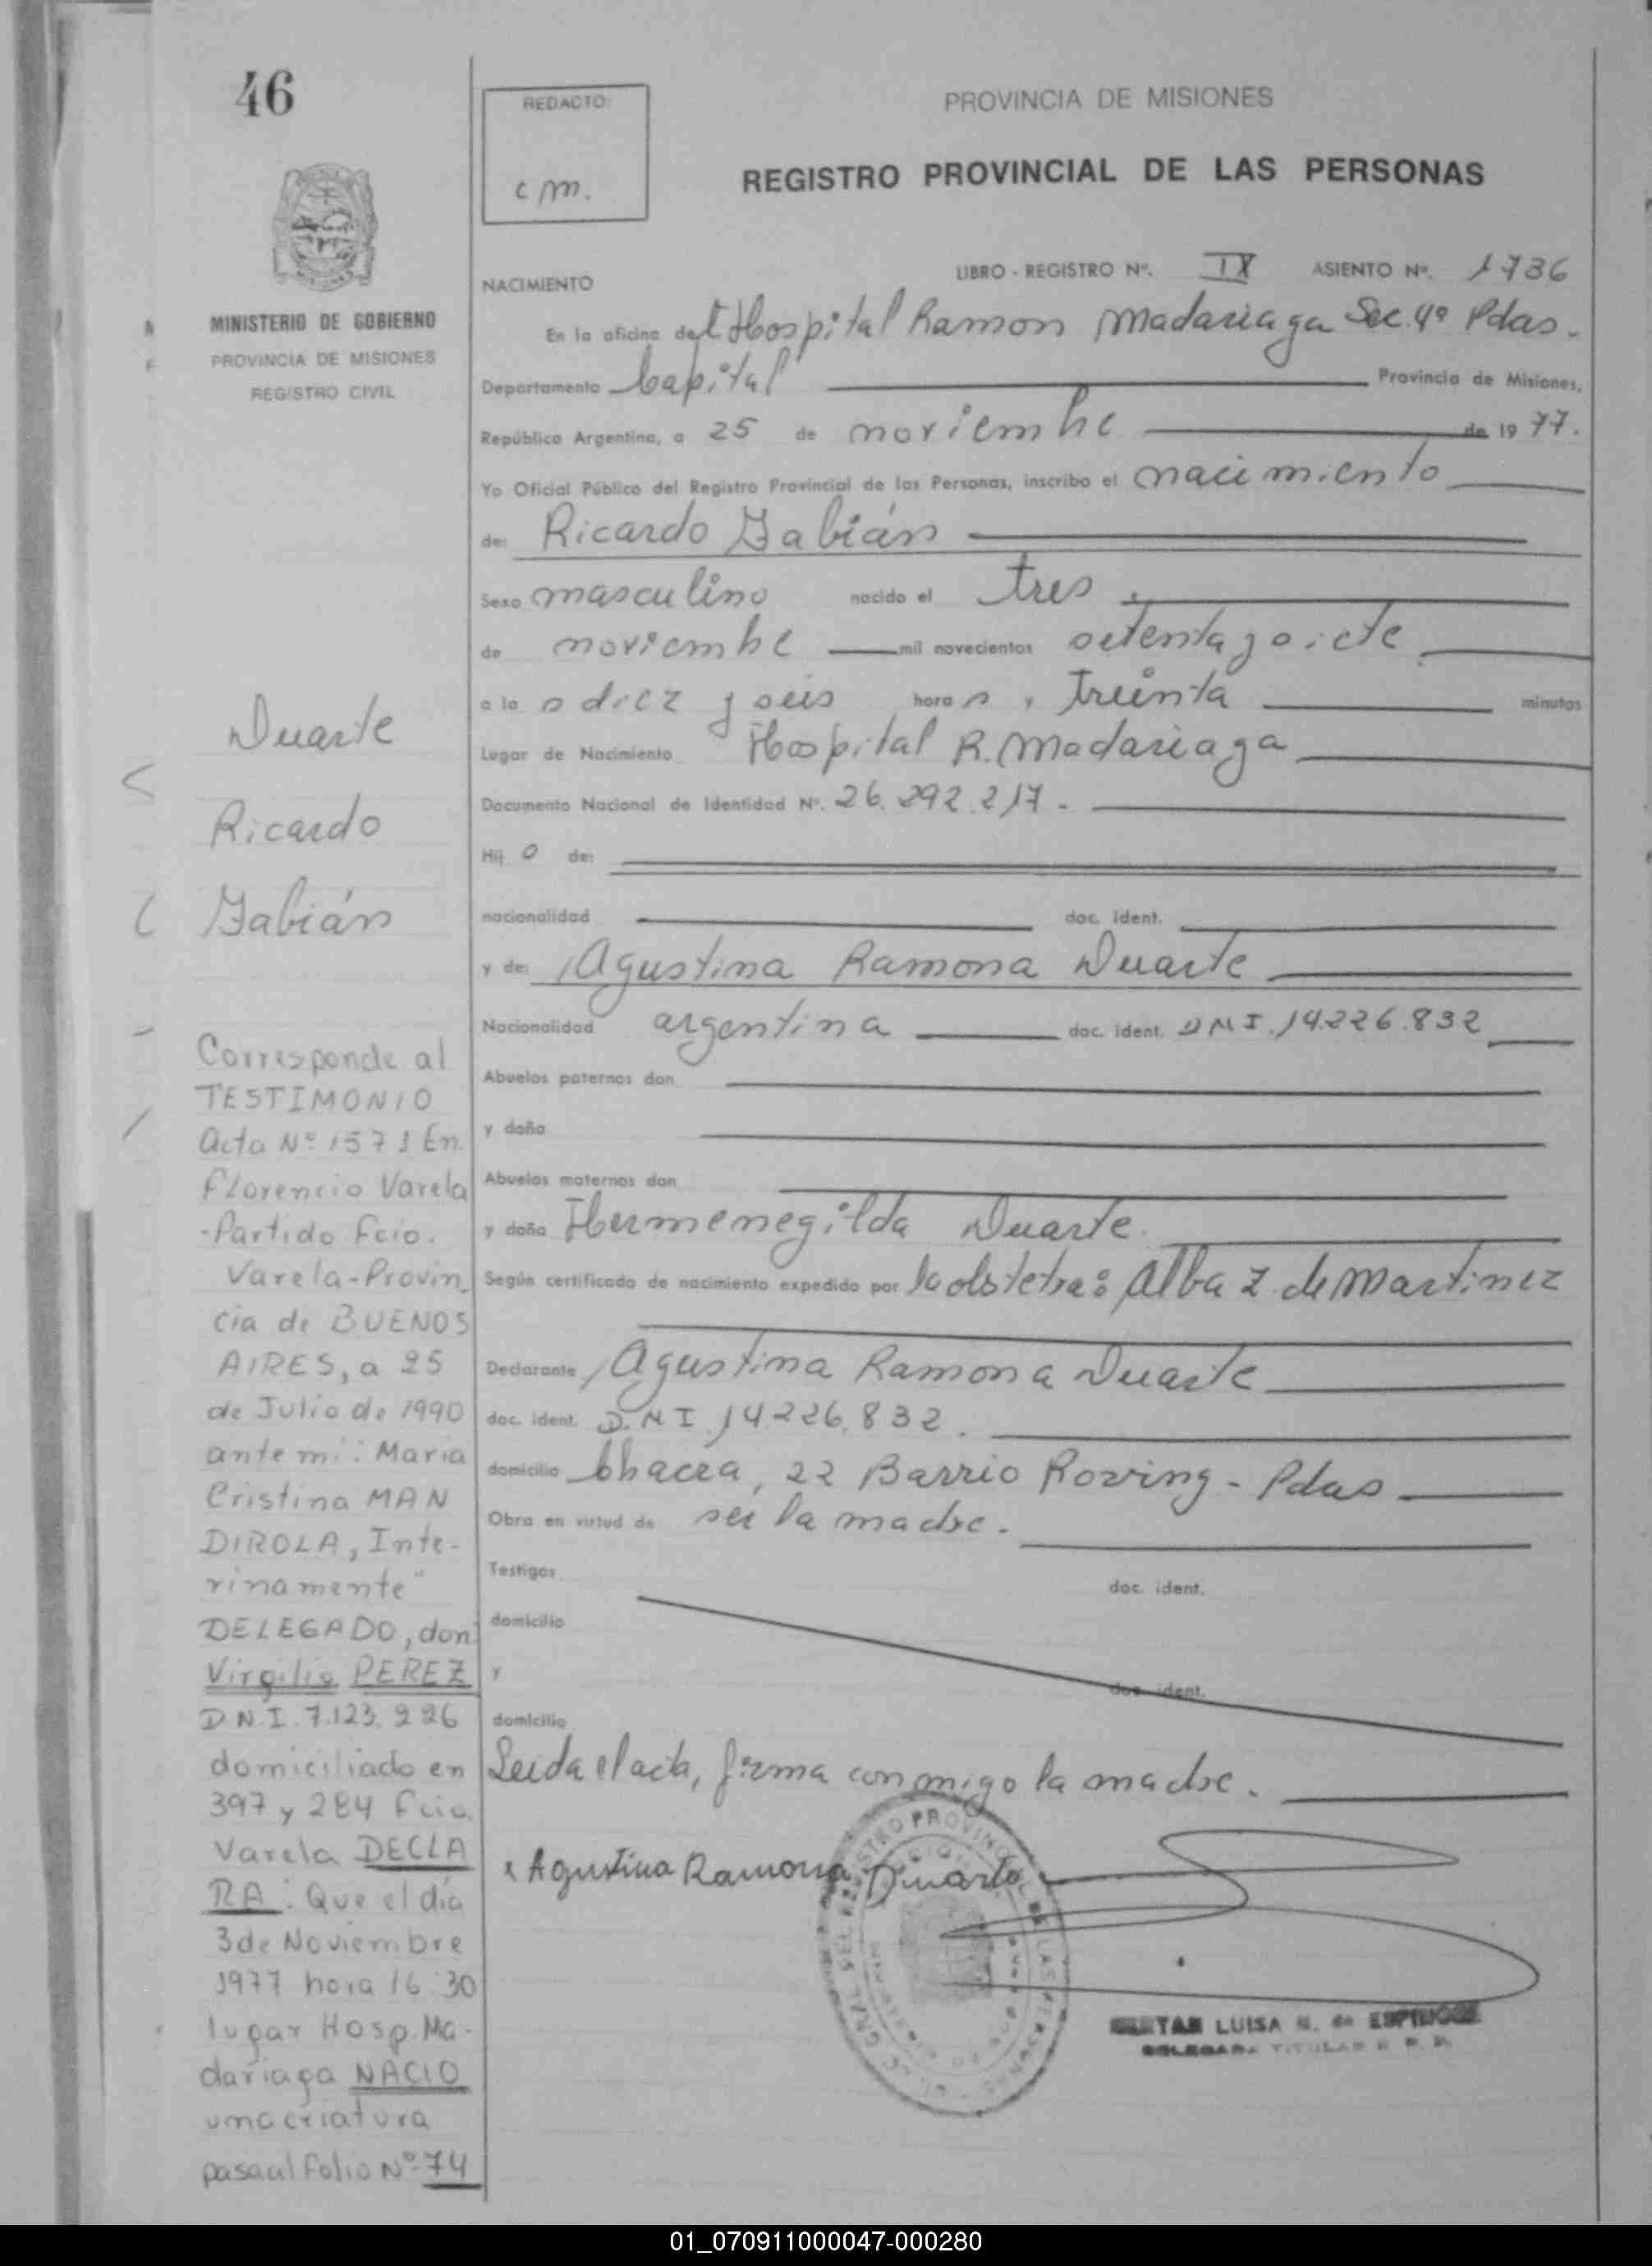 46
REDACTO:
c m.
PROVINCIA DE MISIONES
REGISTRO PROVINCIAL DE LAS PERSONAS
MINISTERIO DE GOBIERNO
PROVINCIA DE MISIONES
REGISTRO CIVIL
LIBRO - REGISTRO Nº. IX ASIENTO Nº. 1736
NACIMIENTO
En la oficina del Hospital Ramon Madariaga Sec. 4ª Pdas.
Departamento Capital Provincia de Misiones,
República Argentina, a 25 de noviembre de 1977.
Yo Oficial Público del Registro Provincial de las Personas, inscribo el nacimiento
de: Ricardo Fabián
Sexo masculino nacido el tres
de noviembre mil novecientos setenta y siete
a la s diez y seis hora s, treinta minutos
Lugar de Nacimiento Hospital R. Madariaga
Documento Nacional de Identidad Nº. 26.292.217.
Hij o de:
nacionalidad doc. ident.
y de: Agustina Ramona Duarte
Nacionalidad argentina doc. ident. DNI. 14.226.832
Abuelos paternos don
y doña
Abuelos maternos don
y doña Hermenegilda Duarte.
Según certificado de nacimiento expedido por la obstetra: Alba Z. de Martinez
Declarante Agustina Ramona Duarte
doc. ident. D.N.I. 14.226.832.
domicilio Chacra, 22 Barrio Rowing - Pdas
Obra en virtud de ser la madre.
Testigos doc. ident.
domicilio
y doc. ident.
domicilio
Leida el acta, firma conmigo la madre.
x Agustina Ramona Duarte
LUISA
Duarte
Ricardo
Fabián
Corresponde al
TESTIMONIO
Acta Nº 1571 En
Florencio Varela
-Partido Fcio.
Varela-Provin
cia de BUENOS
AIRES, a 25
de Julio de 1990
ante mi: Maria
Cristina MAN
DIROLA, Inte-
rinamente"
DELEGADO, don
Virgilio PEREZ
D.N.I. 7.123.226
domiciliado en
397 y 284 Fcio.
Varela DECLA
RA: Que el día
3 de Noviembre
1977 hora 16:30
lugar Hosp. Ma-
dariaga NACIO
una criatura
pasa al Folio Nº 74
01_070911000047-000280